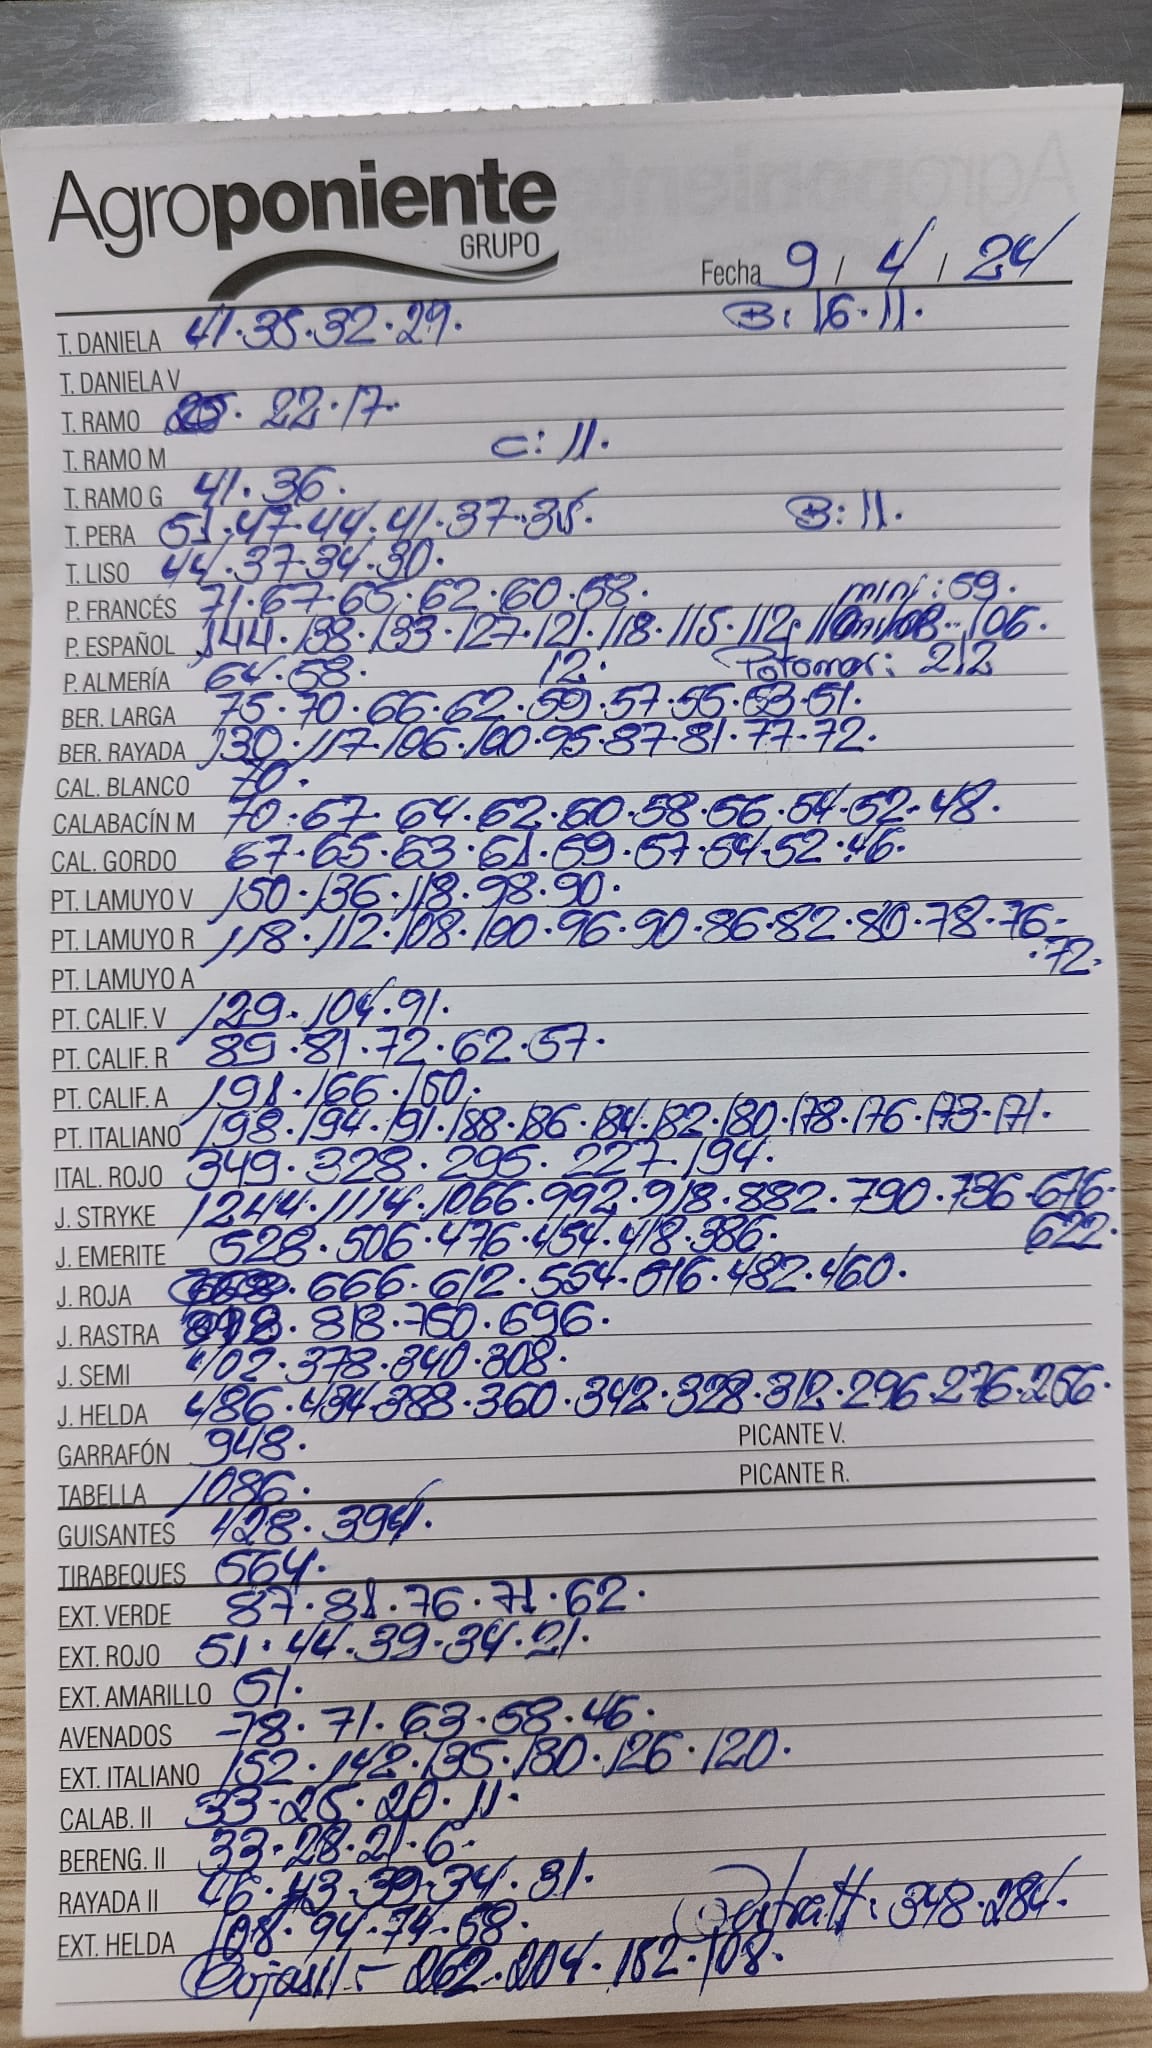 Agroponiente
GRUPO
Fecha 9 / 4 / 24
T. DANIELA 41·35·32·29. B: 16·11.
T. DANIELA V
T. RAMO 25· 22·17·
T. RAMO M C: 11.
T. RAMO G 41·36.
T. PERA 51·47·44·41·37·35. B: 11.
T. LISO 44·37·34·30·
P. FRANCÉS 71·67·65·62·60·58. mini: 59.
P. ESPAÑOL 144·138·133·127·121·118·115·112·110·108·106.
P. ALMERÍA 64·58. 12. 212
BER. LARGA 75·70·66·62·59·57·55·53·51.
BER. RAYADA 130·117·106·100·95·87·81·77·72.
CAL. BLANCO 70.
CALABACÍN M 70·67·64·62·60·58·56·54·52·48.
CAL. GORDO 67·65·63·61·59·57·54·52·46.
PT. LAMUYO V 150·136·118·98·90.
PT. LAMUYO R 118·112·108·100·96·90·86·82·80·78·76-
·72.
PT. LAMUYO A
PT. CALIF. V 129·104·91.
PT. CALIF. R 89·81·72·62·57.
PT. CALIF. A 191·166·150.
PT. ITALIANO 198·194·191·188·186·184·182·180·178·176·173·171.
ITAL. ROJO 349·328·295·227·194.
J. STRYKE 1244·1114·1066·992·918·882·790·736·676·
622.
J. EMERITE 528·506·476·454·418·386.
J. ROJA 666·612·554·516·482·460.
J. RASTRA 818·750·696.
J. SEMI 402·378·340·308.
J. HELDA 486·434·388·360·342·328·312·296·276·256.
GARRAFÓN 948. PICANTE V.
TABELLA 1086. PICANTE R.
GUISANTES 428·394.
TIRABEQUES 564.
EXT. VERDE 87·81·76·71·62.
EXT. ROJO 51·44·39·34·21.
EXT. AMARILLO 51.
AVENADOS 78·71·63·58·46.
EXT. ITALIANO 152·142·135·130·126·120.
CALAB. II 33·25·20·11.
BERENG. II 33·28·21·6.
RAYADA II 46·43·39·34·31.
EXT. HELDA 108·94·74·68. : 348·284.
- 262·204·152·108.